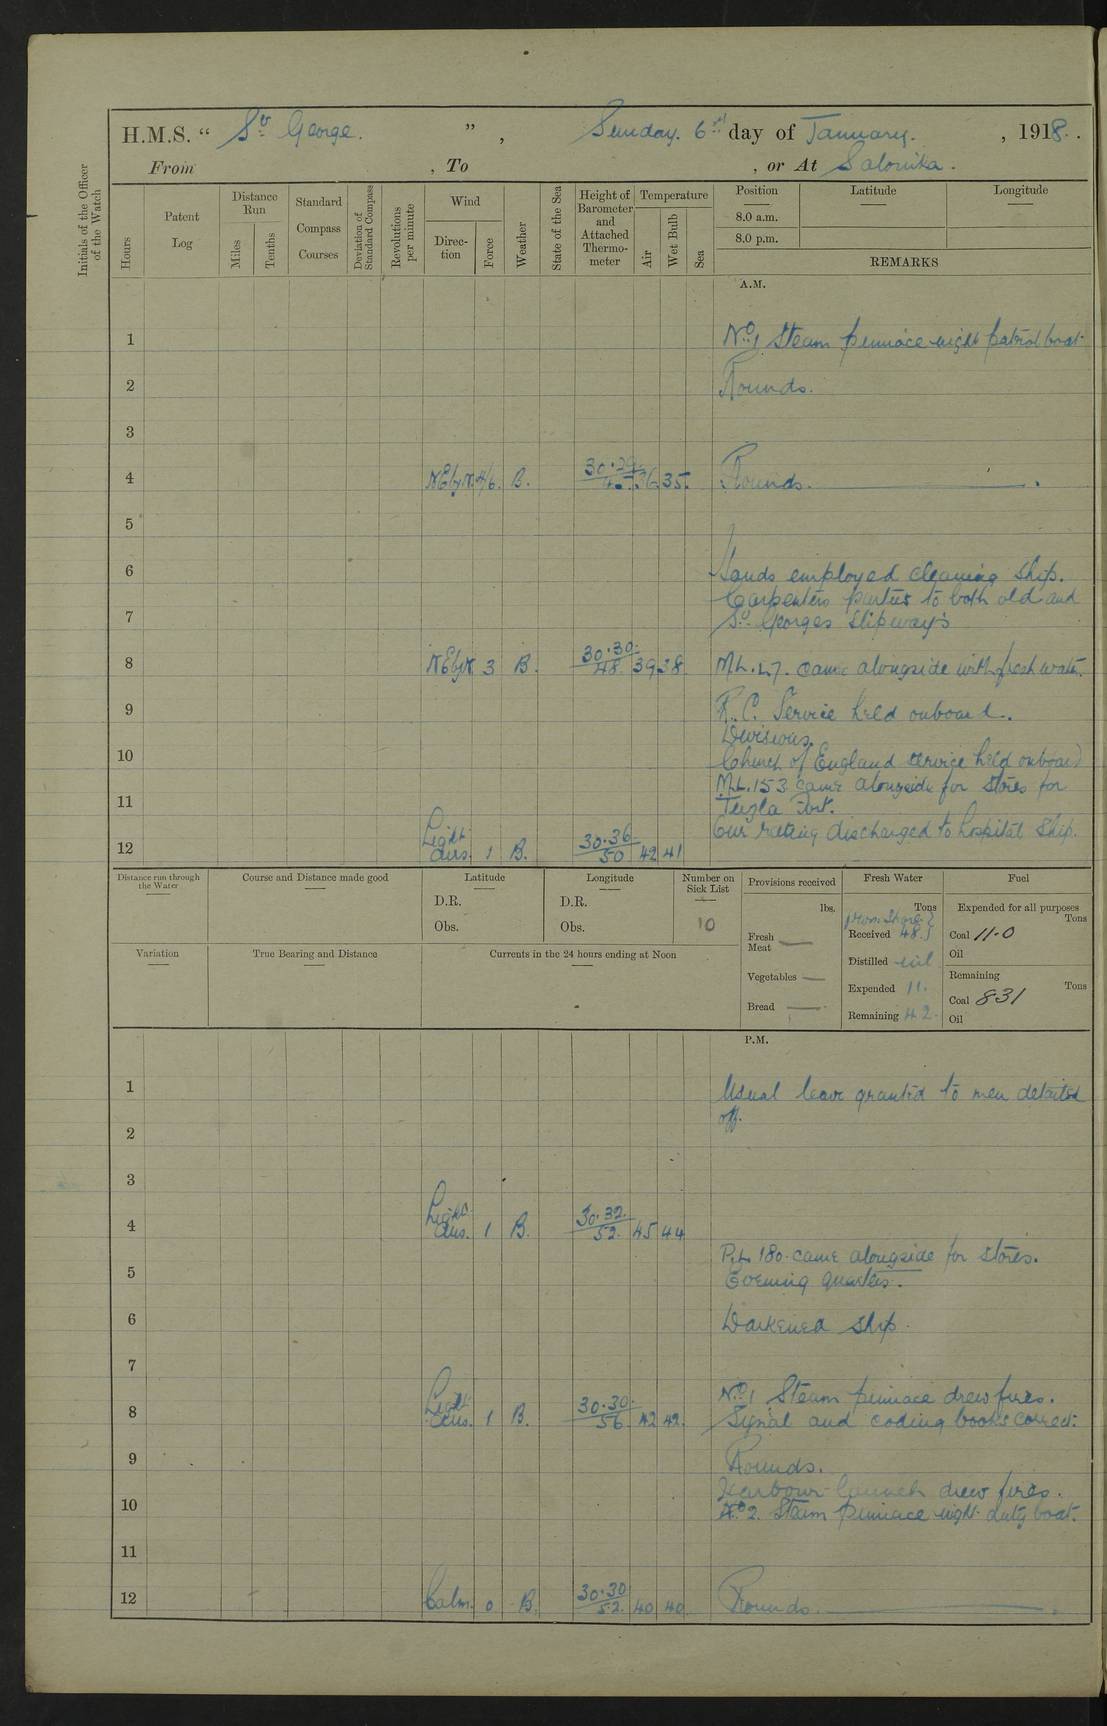 H.M.S. “ St George. ” , Sunday. 6th day of January. , 1918.
From , To , or At Salonika.
Initials of the Officer of the Watch
Hours
Patent Log
Distance Run
Miles
Tenths
Standard Compass Courses
Deviation of Standard Compass
Revolutions per minute
Wind
Direction
Force
Weather
State of the Sea
Height of Barometer and Attached Thermometer
Temperature
Air
Wet Bulb
Sea
Position
Latitude
Longitude
8.0 a.m.
8.0 p.m.
REMARKS
A.M.
1 No. 1 Steam pinnace night patrol boat.
2 Rounds.
3
4 NEbyN. 4/6. B. 30.29 36. 35. Rounds.
5
6 Hands employed cleaning ship.
Carpenters parties to both old and
7 St. Georges slipway's
8 NEbyN 3 B. 30.30. 48. 39 38. M.L. L7. came alongside with fresh water.
9 R.C. Service held onboard.
Divisions.
10 Church of England service held onboard
M.L. 153 came alongside for stores for
11 Tuzla Fort.
One rating discharged to hospital ship.
12 Light airs. 1 B. 30.36 50 42 41
Distance run through the Water
Course and Distance made good
Latitude
D.R.
Obs.
Longitude
D.R.
Obs.
Number on Sick List
10
Provisions received
lbs.
Fresh Meat
Vegetables
Bread
Fresh Water
Tons
From Shore
Received 48.
Distilled nil
Expended 11.
Remaining 42.
Fuel
Expended for all purposes
Tons
Coal 11.0
Oil
Remaining
Tons
Coal 831
Oil
Variation
True Bearing and Distance
Currents in the 24 hours ending at Noon
P.M.
1 Usual leave granted to men detailed
off.
2
3
4 Light airs. 1 B. 30.32. 52. 45 44
P.L. 180. came alongside for stores.
5 Evening quarters.
6 Darkened ship.
7
No. 1 Steam pinnace drew fires.
8 Light airs. 1 B. 30.30. 56. 42 42. Signal and coding books correct.
9 Rounds.
Harbour launch drew fires.
10 No. 2. Steam pinnace night duty boat.
11
12 Calm. 0 B. 30.30 52. 40 40. Rounds.